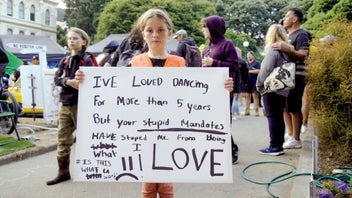 I'VE LOVED DANCING
For More than 5 years
But your stupid Mandates
HAVE Stoped Me From Doing
What I
!!! LOVE
#IS THIS
WHAT U
want